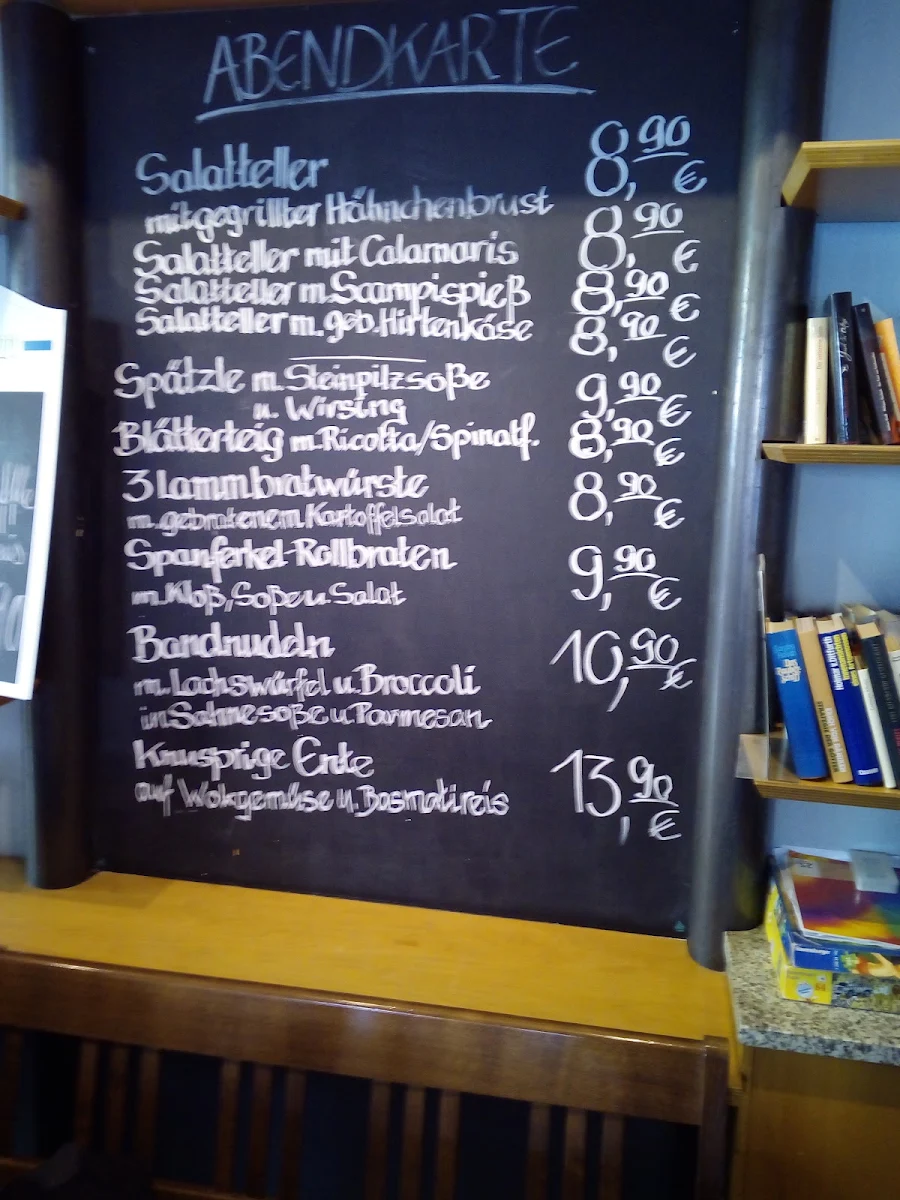 ABENDKARTE
Salatteller 8,90 €
mit gegrillter Hähnchenbrust
Salatteller mit Calamaris 8,90 €
Salatteller m. Scampispieß 8,90 €
Salatteller m. geb. Hirtenkäse 8,90 €
Spätzle m. Steinpilzsoße 9,90 €
u. Wirsing
Blätterteig m. Ricotta/Spinatf. 8,90 €
3 Lammbratwürste 8,90 €
m. gebratenem Kartoffelsalat
Spanferkel-Rollbraten 9,90 €
m. Kloß, Soße u. Salat
Bandnudeln 10,90 €
m. Lachswürfel u. Broccoli
in Sahnesoße u. Parmesan
Knusprige Ente 13,90 €
auf Wokgemüse u. Basmatireis